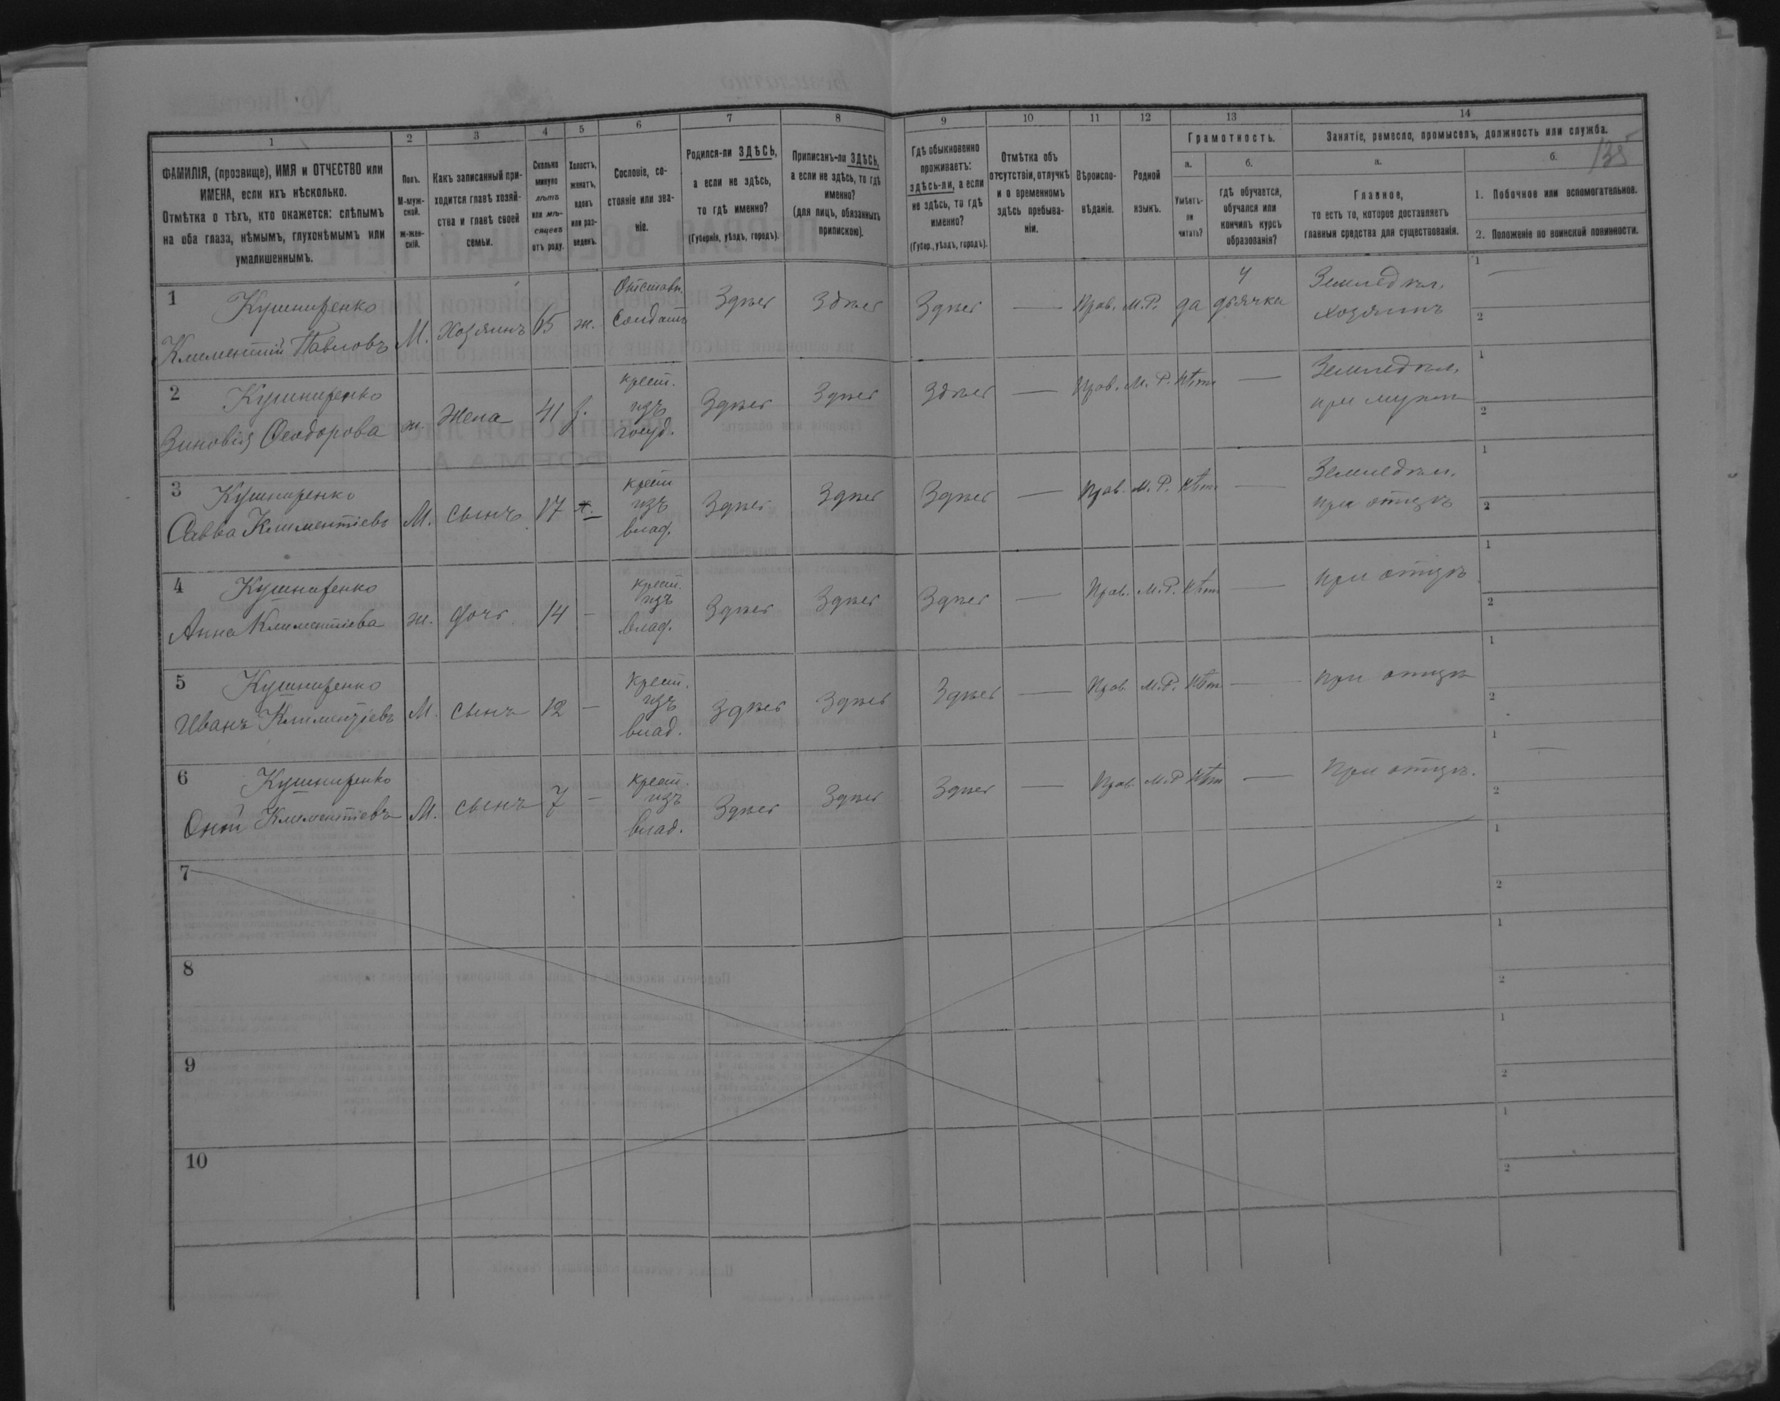 1 2 3 4 5 6 7 8 9 10 11 12 13 14
ФАМИЛІЯ, (прозвище), ИМЯ и ОТЧЕСТВО или
ИМЕНА, если ихъ нѣсколько.
Отмѣтка о тѣхъ, кто окажется: слѣпымъ
на оба глаза, нѣмымъ, глухонѣмымъ или
умалишеннымъ.
Полъ.
М-муж-
ской.
ж-жен-
скій.
Какъ записанный при-
ходится главѣ хозяй-
ства и главѣ своей
семьи.
Сколько
минуло
лѣтъ
или мѣ-
сяцевъ
отъ роду.
Холостъ,
женатъ,
вдовъ
или раз-
веденъ.
Сословіе, со-
стояніе или зва-
ніе.
Родился-ли ЗДѢСЬ,
а если не здѣсь,
то гдѣ именно?
(Губернія, уѣздъ, городъ).
Приписанъ-ли ЗДѢСЬ,
а если не здѣсь, то гдѣ
именно?
(для лицъ, обязанныхъ
припискою).
Гдѣ обыкновенно
проживаетъ:
здѣсь-ли, а если
не здѣсь, то гдѣ
именно?
(Губер., уѣздъ, городъ).
Отмѣтка объ
отсутствіи, отлучкѣ
и о временномъ
здѣсь пребыва-
ніи.
Вѣроиспо-
вѣданіе.
Родной
языкъ.
Грамотность.
а.
Умѣетъ-
ли
читать?
б.
гдѣ обучается,
обучался или
кончилъ курсъ
образованія?
Занятіе, ремесло, промыселъ, должность или служба.
135
а.
Главное,
то есть то, которое доставляетъ
главныя средства для существованія.
б.
1. Побочное или вспомогательное.
2. Положеніе по воинской повинности.
1 Кушниренко
Климентій Павловъ М. Хозяинъ 65 ж. Отставн. Солдатъ Здѣсь Здѣсь Здѣсь — Прав. М.Р. да у дьячка Земледѣл. хозяинъ 1 — 2
2 Кушниренко
Зиновія Ѳеодорова ж. Жена 41 з. крест. изъ госуд. Здѣсь Здѣсь Здѣсь — Прав. М.Р. нѣтъ — Земледѣл. при мужѣ 1 2
3 Кушниренко
Савва Климентіевъ М. сынъ 17 х. крест. изъ влад. Здѣсь Здѣсь Здѣсь — Прав. М.Р. нѣтъ — Земледѣл. при отцѣ 1 2
4 Кушниренко
Анна Климентіева ж. дочь 14 — крест. изъ влад. Здѣсь Здѣсь Здѣсь — Прав. М.Р. нѣтъ — при отцѣ 1 2
5 Кушниренко
Иванъ Климентіевъ М. сынъ 12 — крест. изъ влад. Здѣсь Здѣсь Здѣсь — Прав. М.Р. нѣтъ — при отцѣ 1 2
6 Кушниренко
Климентіевъ М. сынъ 7 — крест. изъ влад. Здѣсь Здѣсь Здѣсь — Прав. М.Р. нѣтъ — При отцѣ. 1 — 2
7 1 2
8 1 2
9 1 2
10 1 2